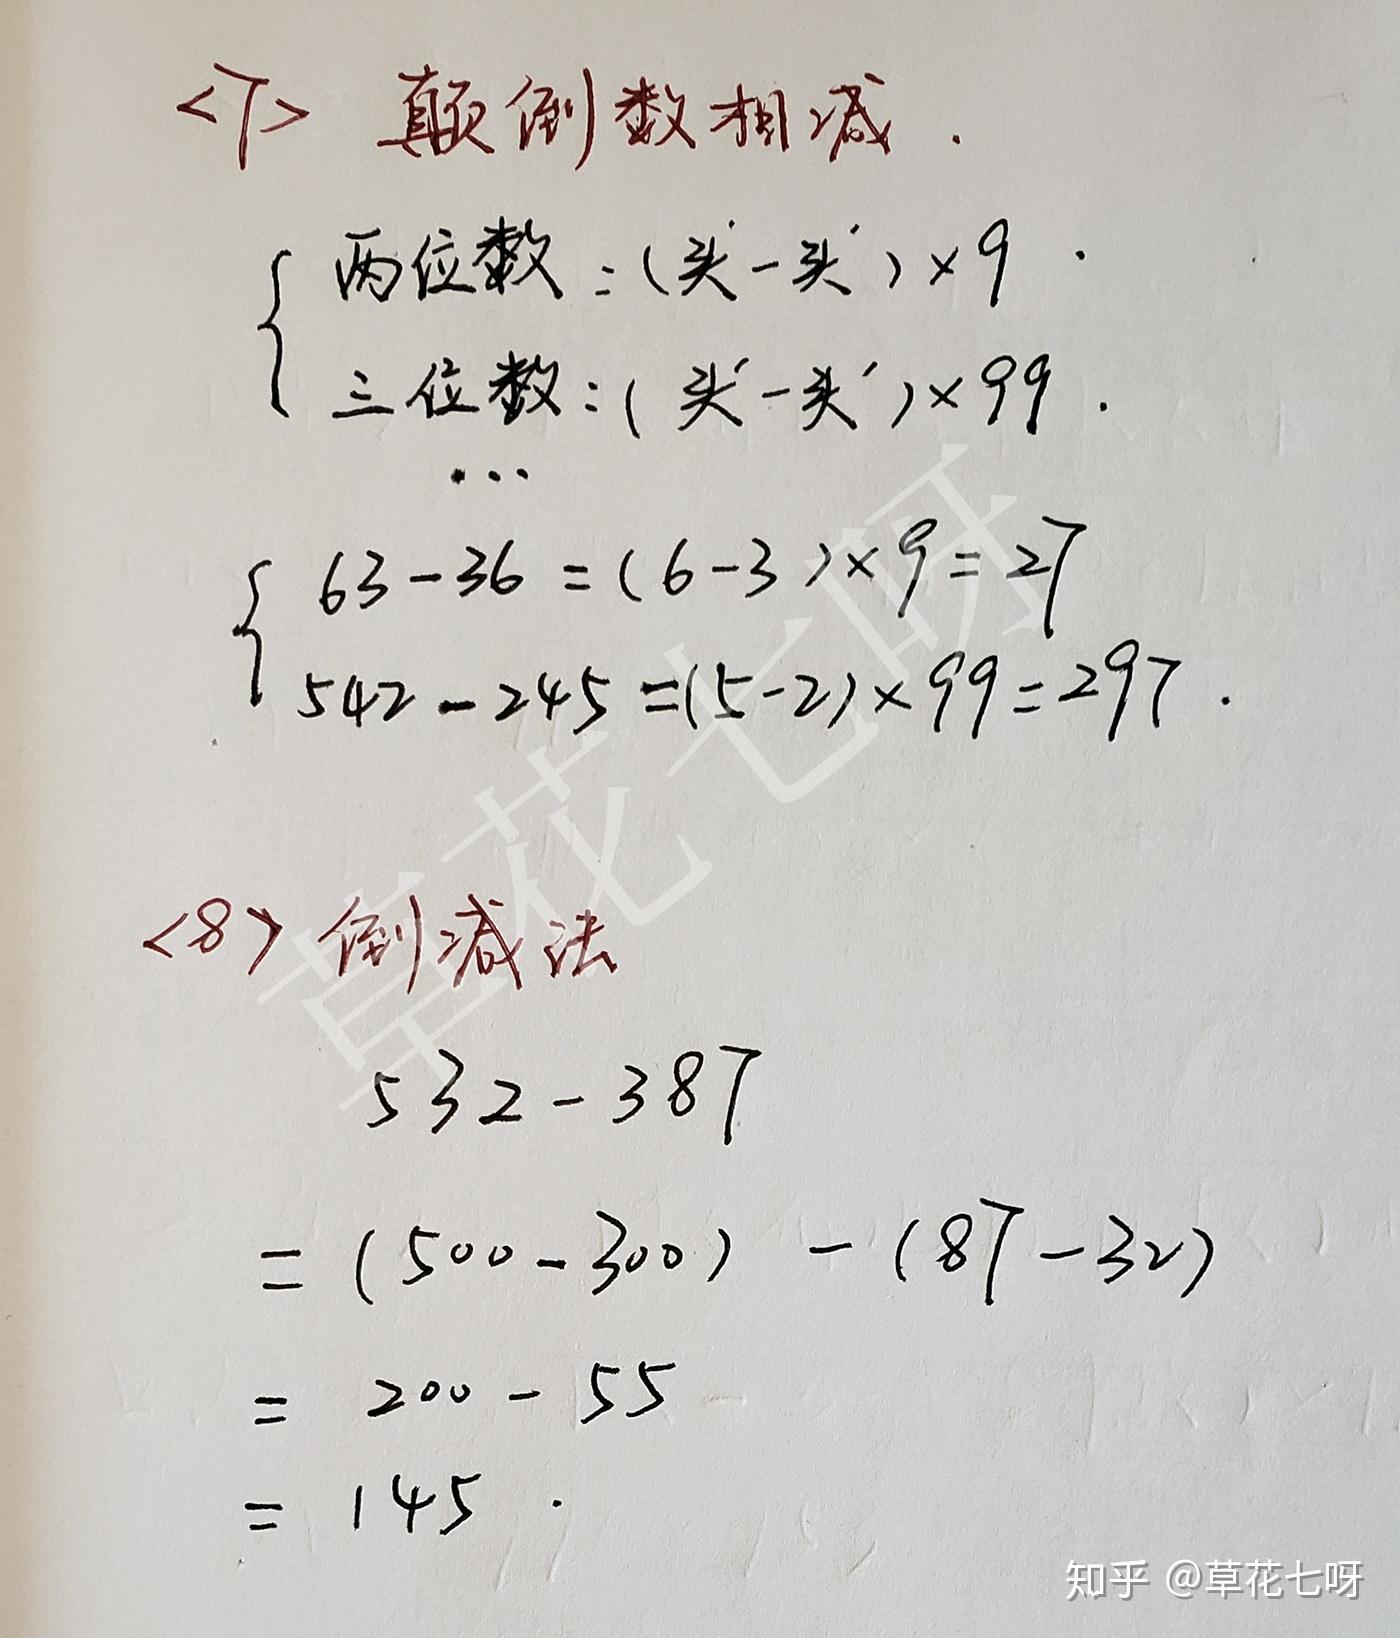 <7> 颠倒数相减.
两位数:(头-头)×9.
三位数:(头-头)×99.
...
63-36=(6-3)×9=27
542-245=(5-2)×99=297.
草花七呀
<8> 倒减法
532-387
=(500-300)-(87-32)
=200-55
=145.
知乎 @草花七呀